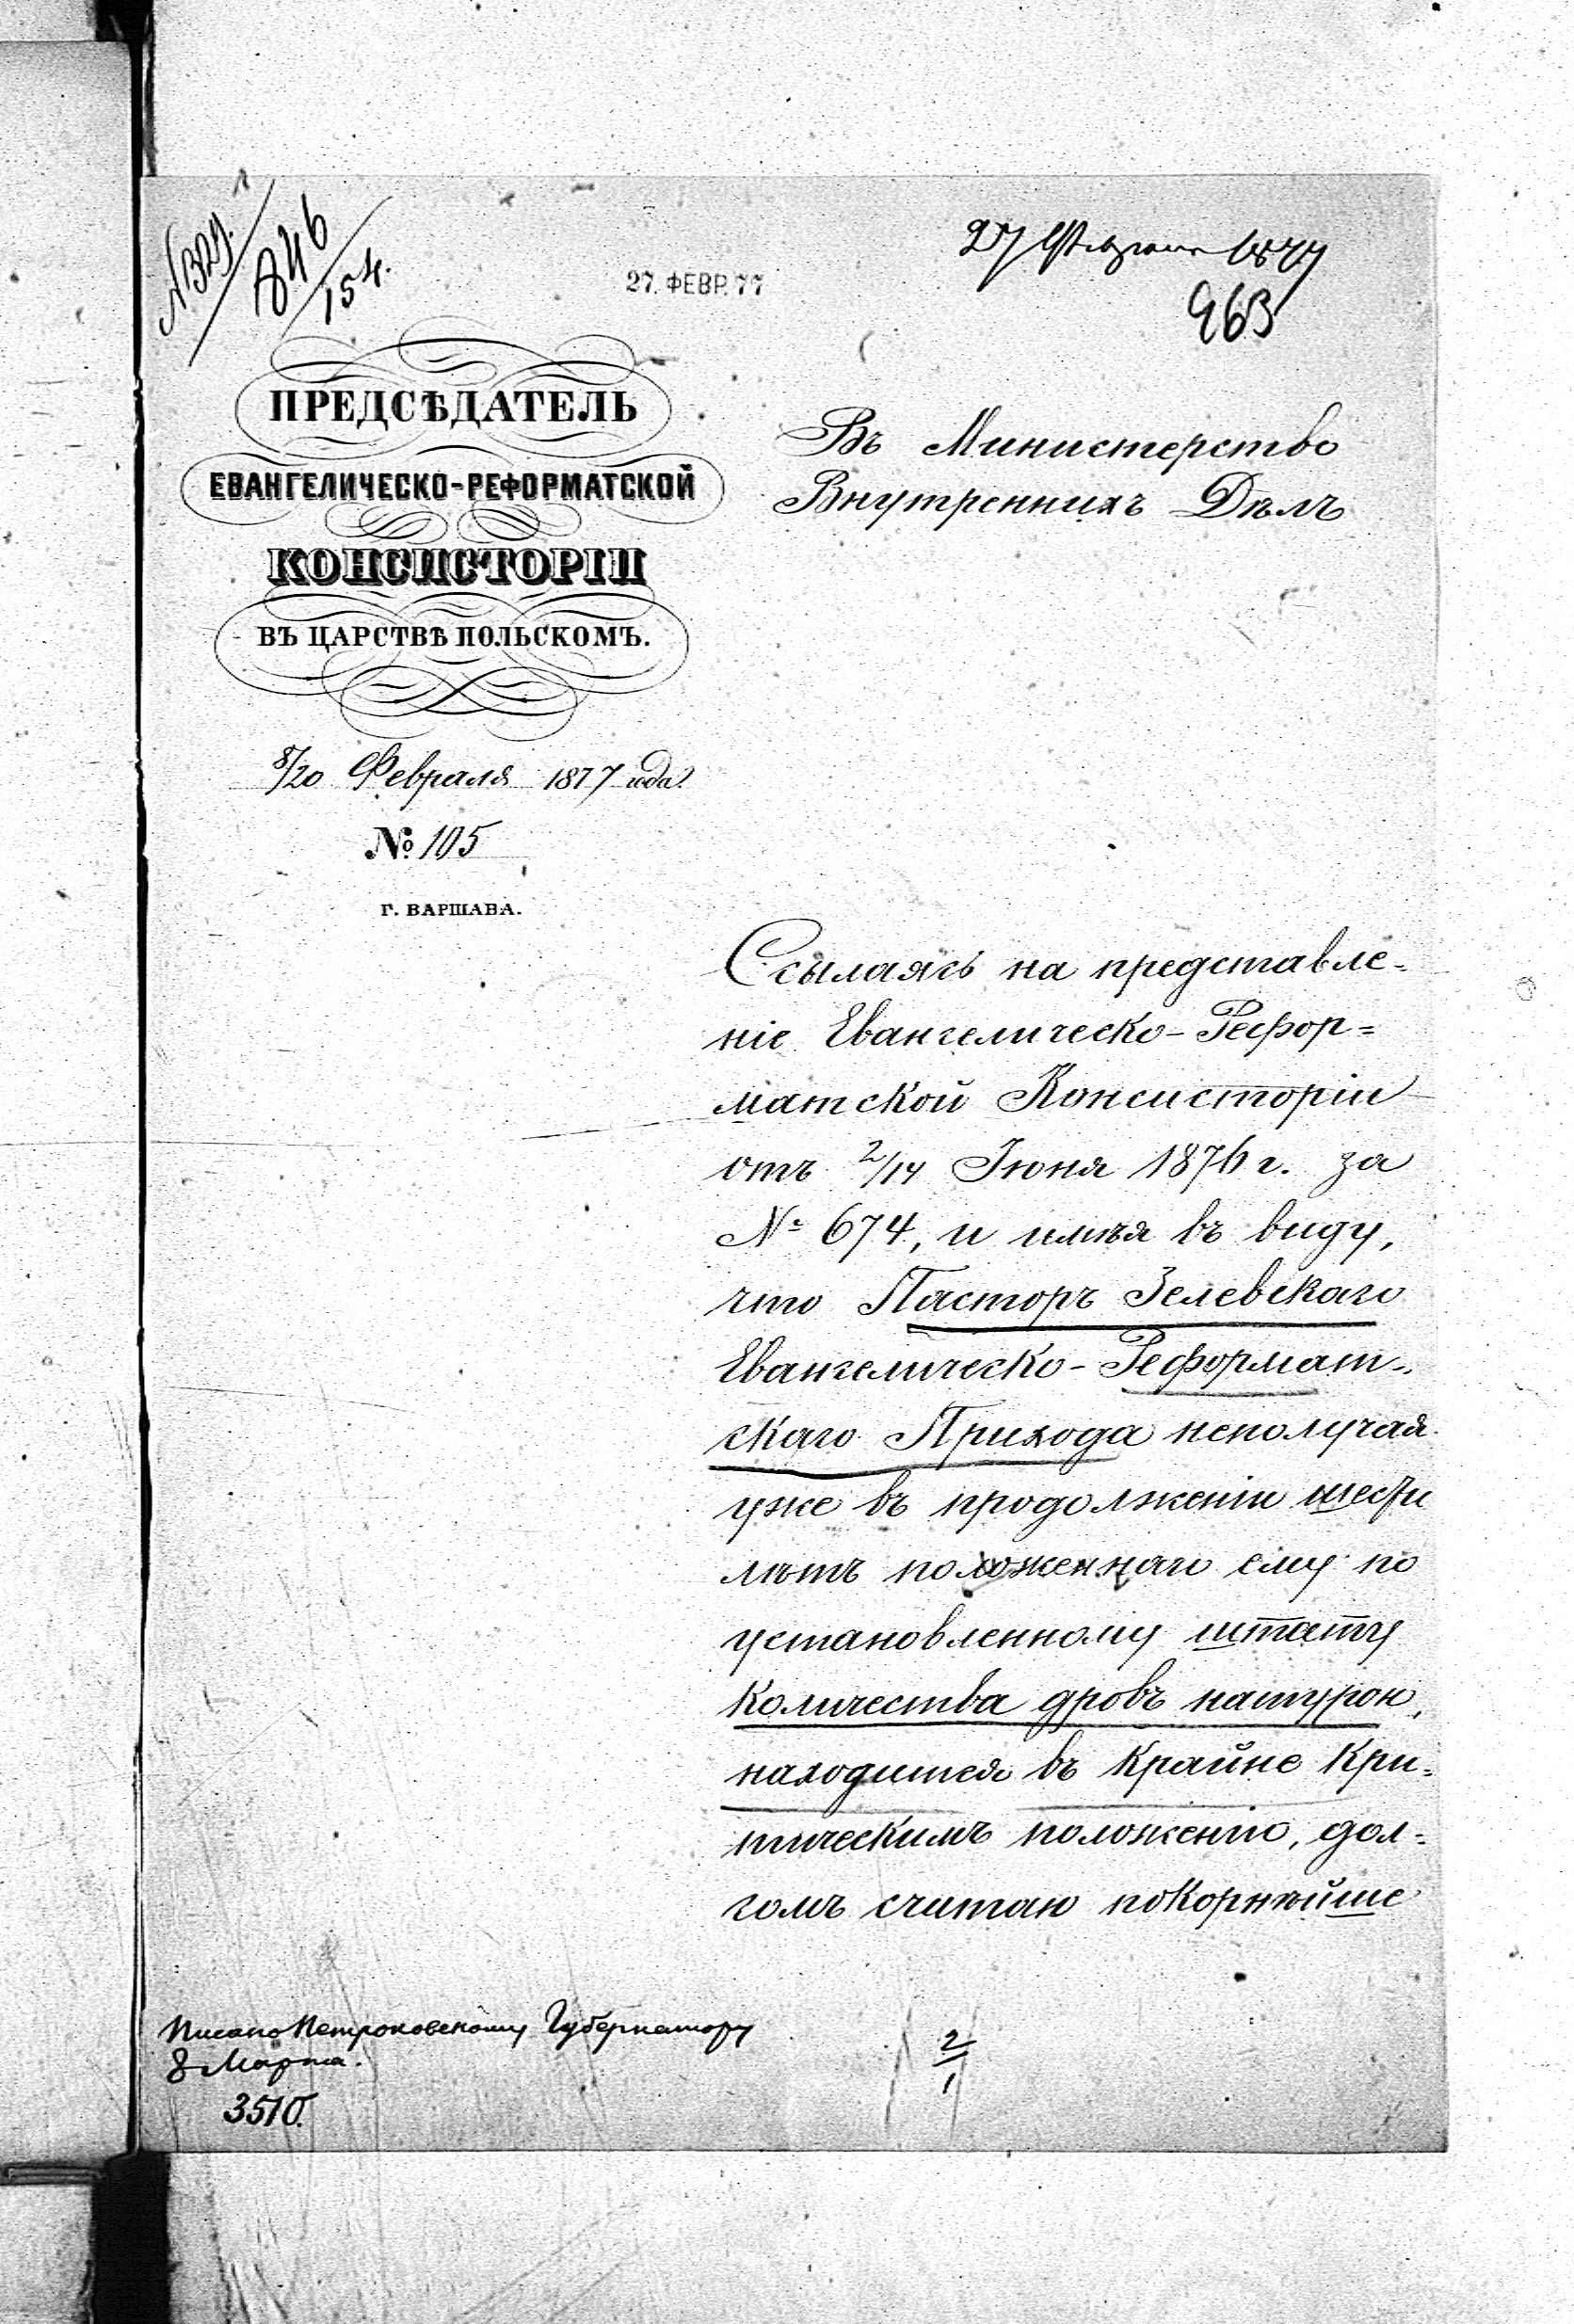 №329.
846
154.
27. ФЕВР. 77
27 Февраля 1877
963
ПРЕДСѢДАТЕЛЬ
ЕВАНГЕЛИЧЕСКО-РЕФОРМАТСКОЙ
КОНСИСТОРІИ
ВЪ ЦАРСТВѢ ПОЛЬСКОМЪ.
8/20 Февраля 1877 года
№ 105
Г. ВАРШАВА.
Въ Министерство
Внутреннихъ Дѣлъ
Ссылаясь на представле-
ніе Евангелическо-Рефор=
матской Консисторіи
отъ 2/14 Іюня 1876 г. за
№ 674, и имѣя въ виду,
что Пасторъ Зелевскаго
Евангелическо-Реформат-
скаго Прихода неполучая
уже въ продолженіи шести
лѣтъ положеннаго ему по
установленному штату
количества дровъ натурою,
находится въ крайне кри-
тическимъ положеніи, дол-
гомъ считаю покорнѣйше
Писано Петроковскому Губернатору
8 Марта.
3510.
2
1